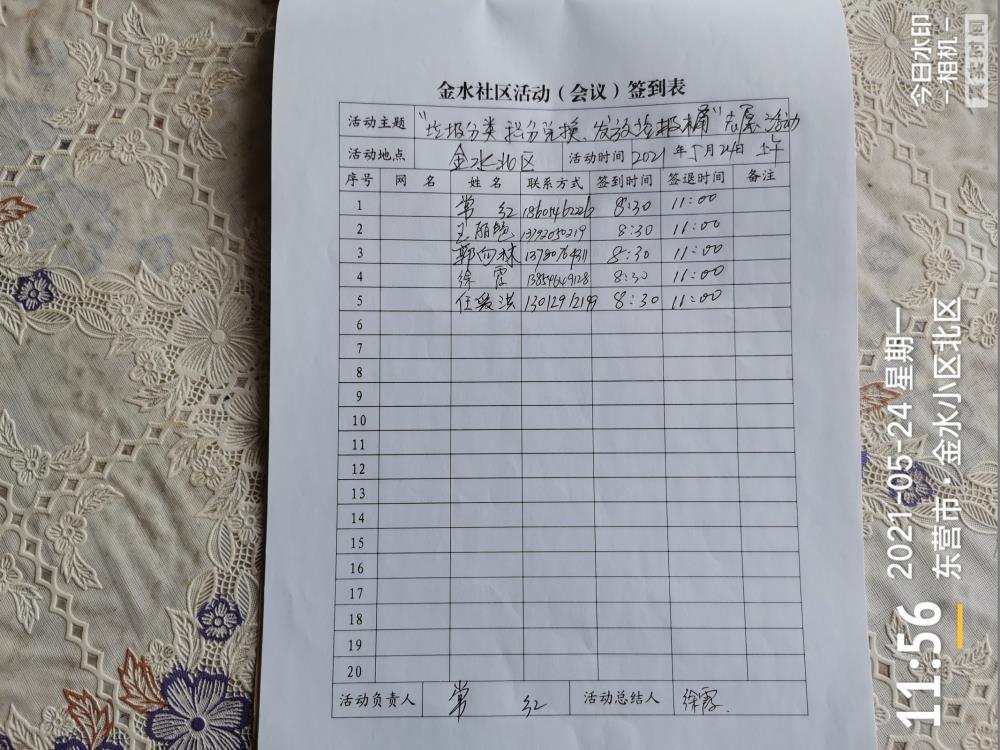 金水社区活动（会议）签到表
活动主题 "垃圾分类 积分兑换、发放垃圾桶"志愿活动
活动地点 金水北区 活动时间 2021年5月24日 上午
序号 网 名 姓 名 联系方式 签到时间 签退时间 备注
1 常 红 18601462226 8:30 11:00
2 王丽艳 13792050219 8:30 11:00
3 郭向林 13780764311 8:30 11:00
4 徐 霞 13854649128 8:30 11:00
5 任爱洪 13012912199 8:30 11:00
6
7
8
9
10
11
12
13
14
15
16
17
18
19
20
活动负责人 常 红 活动总结人 徐霞.
今日水印
-相机-
真实时间
11:56
2021-05-24 星期一
东营市·金水小区北区